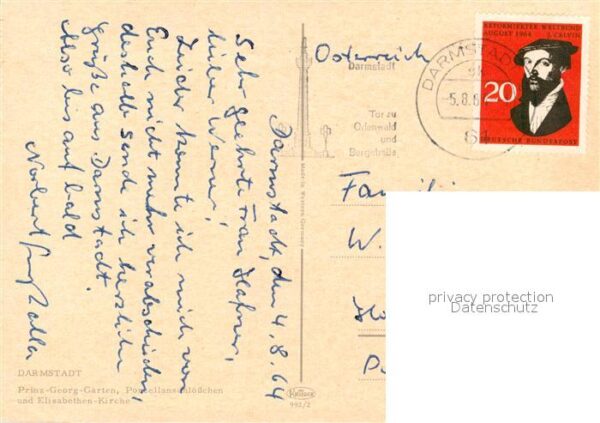 Darmstadt, den 4.8.64
Sehr geehrte Frau Hafner,
lieber Werner!
Leider konnte ich mich von
Euch nicht mehr verabschieden,
deshalb sende ich herzliche
Grüße aus Darmstadt.
Also bis auf bald
Norbert
DARMSTADT
Prinz-Georg-Garten, Porzellanschlößchen
und Elisabethen-Kirche
Made in Western Germany
992/2
Österreich
Darmstadt
Tor zu
Odenwald
und
Bergstraße
DARMSTADT
5.8.6
61
REFORMIERTER WELTBUND
AUGUST 1964 J. CALVIN
20
DEUTSCHE BUNDESPOST
Famili
W.
privacy protection
Datenschutz